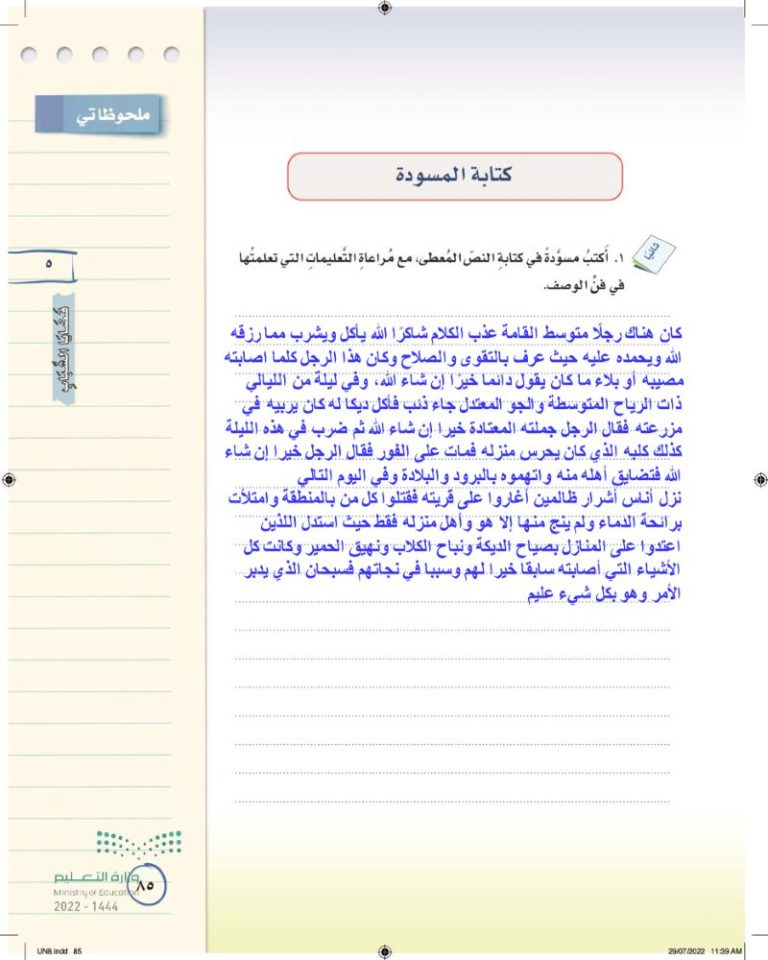 ملحوظاتي
كتابة المسودة
ثانيًا
١. أَكتبُ مسوَّدةً في كتابةِ النصّ المُعطى، مع مُراعاةِ التَّعليماتِ التي تعلمتُها
في فنِّ الوصف.
كان هناك رجلًا متوسط القامة عذب الكلام شاكرًا الله يأكل ويشرب مما رزقه
الله ويحمده عليه حيث عرف بالتقوى والصلاح وكان هذا الرجل كلما اصابته
مصيبه أو بلاء ما كان يقول دائما خيرًا إن شاء الله، وفي ليلة من الليالي
ذات الرياح المتوسطة والجو المعتدل جاء ذئب فأكل ديكا له كان يربيه في
مزرعته فقال الرجل جملته المعتادة خيرا إن شاء الله ثم ضرب في هذه الليلة
كذلك كلبه الذي كان يحرس منزله فمات على الفور فقال الرجل خيرا إن شاء
الله فتضايق أهله منه واتهموه بالبرود والبلادة وفي اليوم التالي
نزل أناس أشرار ظالمين أغاروا على قريته فقتلوا كل من بالمنطقة وامتلأت
برائحة الدماء ولم ينج منها إلا هو وأهل منزله فقط حيث استدل اللذين
اعتدوا على المنازل بصياح الديكة ونباح الكلاب ونهيق الحمير وكانت كل
الأشياء التي أصابته سابقا خيرا لهم وسببا في نجاتهم فسبحان الذي يدبر
الأمر وهو بكل شيء عليم
٥
قضايا الشباب
وزارة التعليم
Ministry of Education
2022 - 1444
٨٥
UN8.indd 85
29/07/2022 11:39 AM